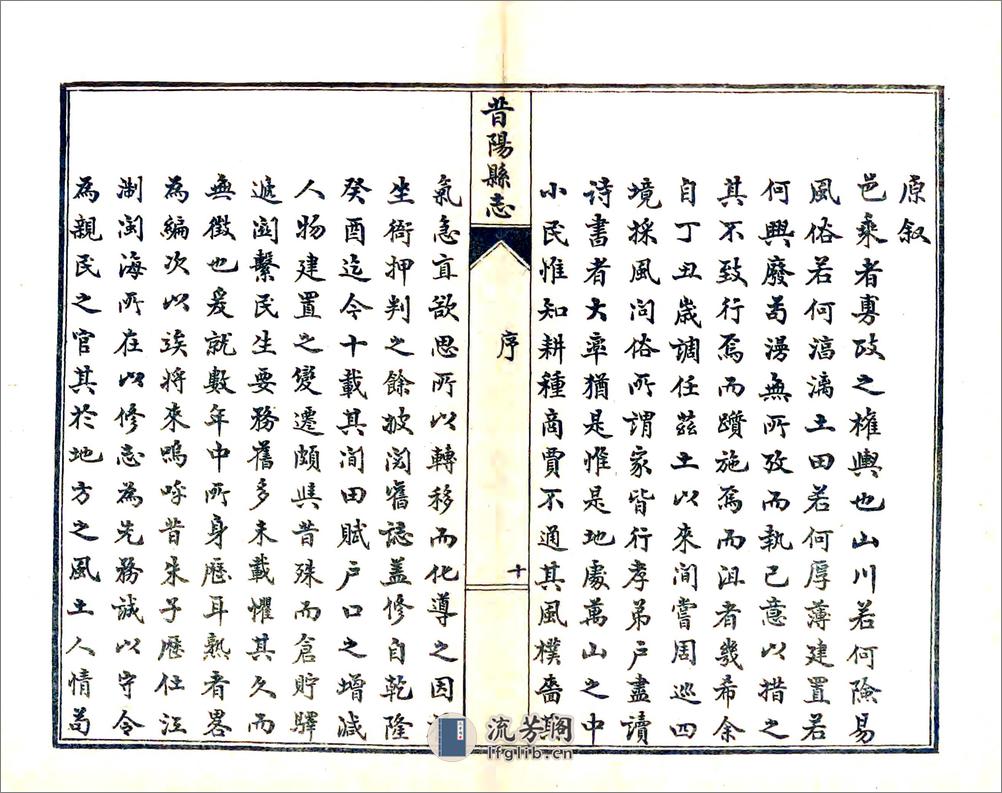 原叙
邑乘者專政之權輿也山川若何險易
風俗若何淳漓土田若何厚薄建置若
何興廢苟漫無所攷而執己意以措之
其不致行焉而躓施焉而沮者幾希余
自丁丑歲調任茲土以來間嘗周巡四
境採風问俗所謂家皆行孝弟户盡讀
诗書者大率猶是惟是地處萬山之中
小民惟知耕種商賈不通其風樸嗇其
昔陽縣志
序
十
氣急宜欲思所以轉移而化導之因
坐衙押判之餘披閲舊誌盖修自乾隆
癸酉迄今十載其间田賦户口之增減
人物建置之變遷頗與昔殊而倉貯驛
遞關繫民生要務舊多未載懼其久而
無徵也爰就數年中所身歷耳熟者畧
為編次以俟将來嗚呼昔朱子歷仕江
浙闽海所在以修志為先務誠以守令
為親民之官其於地方之風土人情苟
流芳閣
lfglib.cn